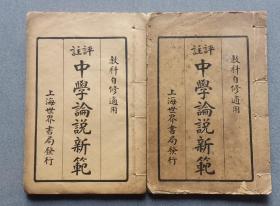 教科自修適用
評註
中學論說新範
上海世界書局發行
教科自修適用
評註
中學論說新範
上海世界書局發行